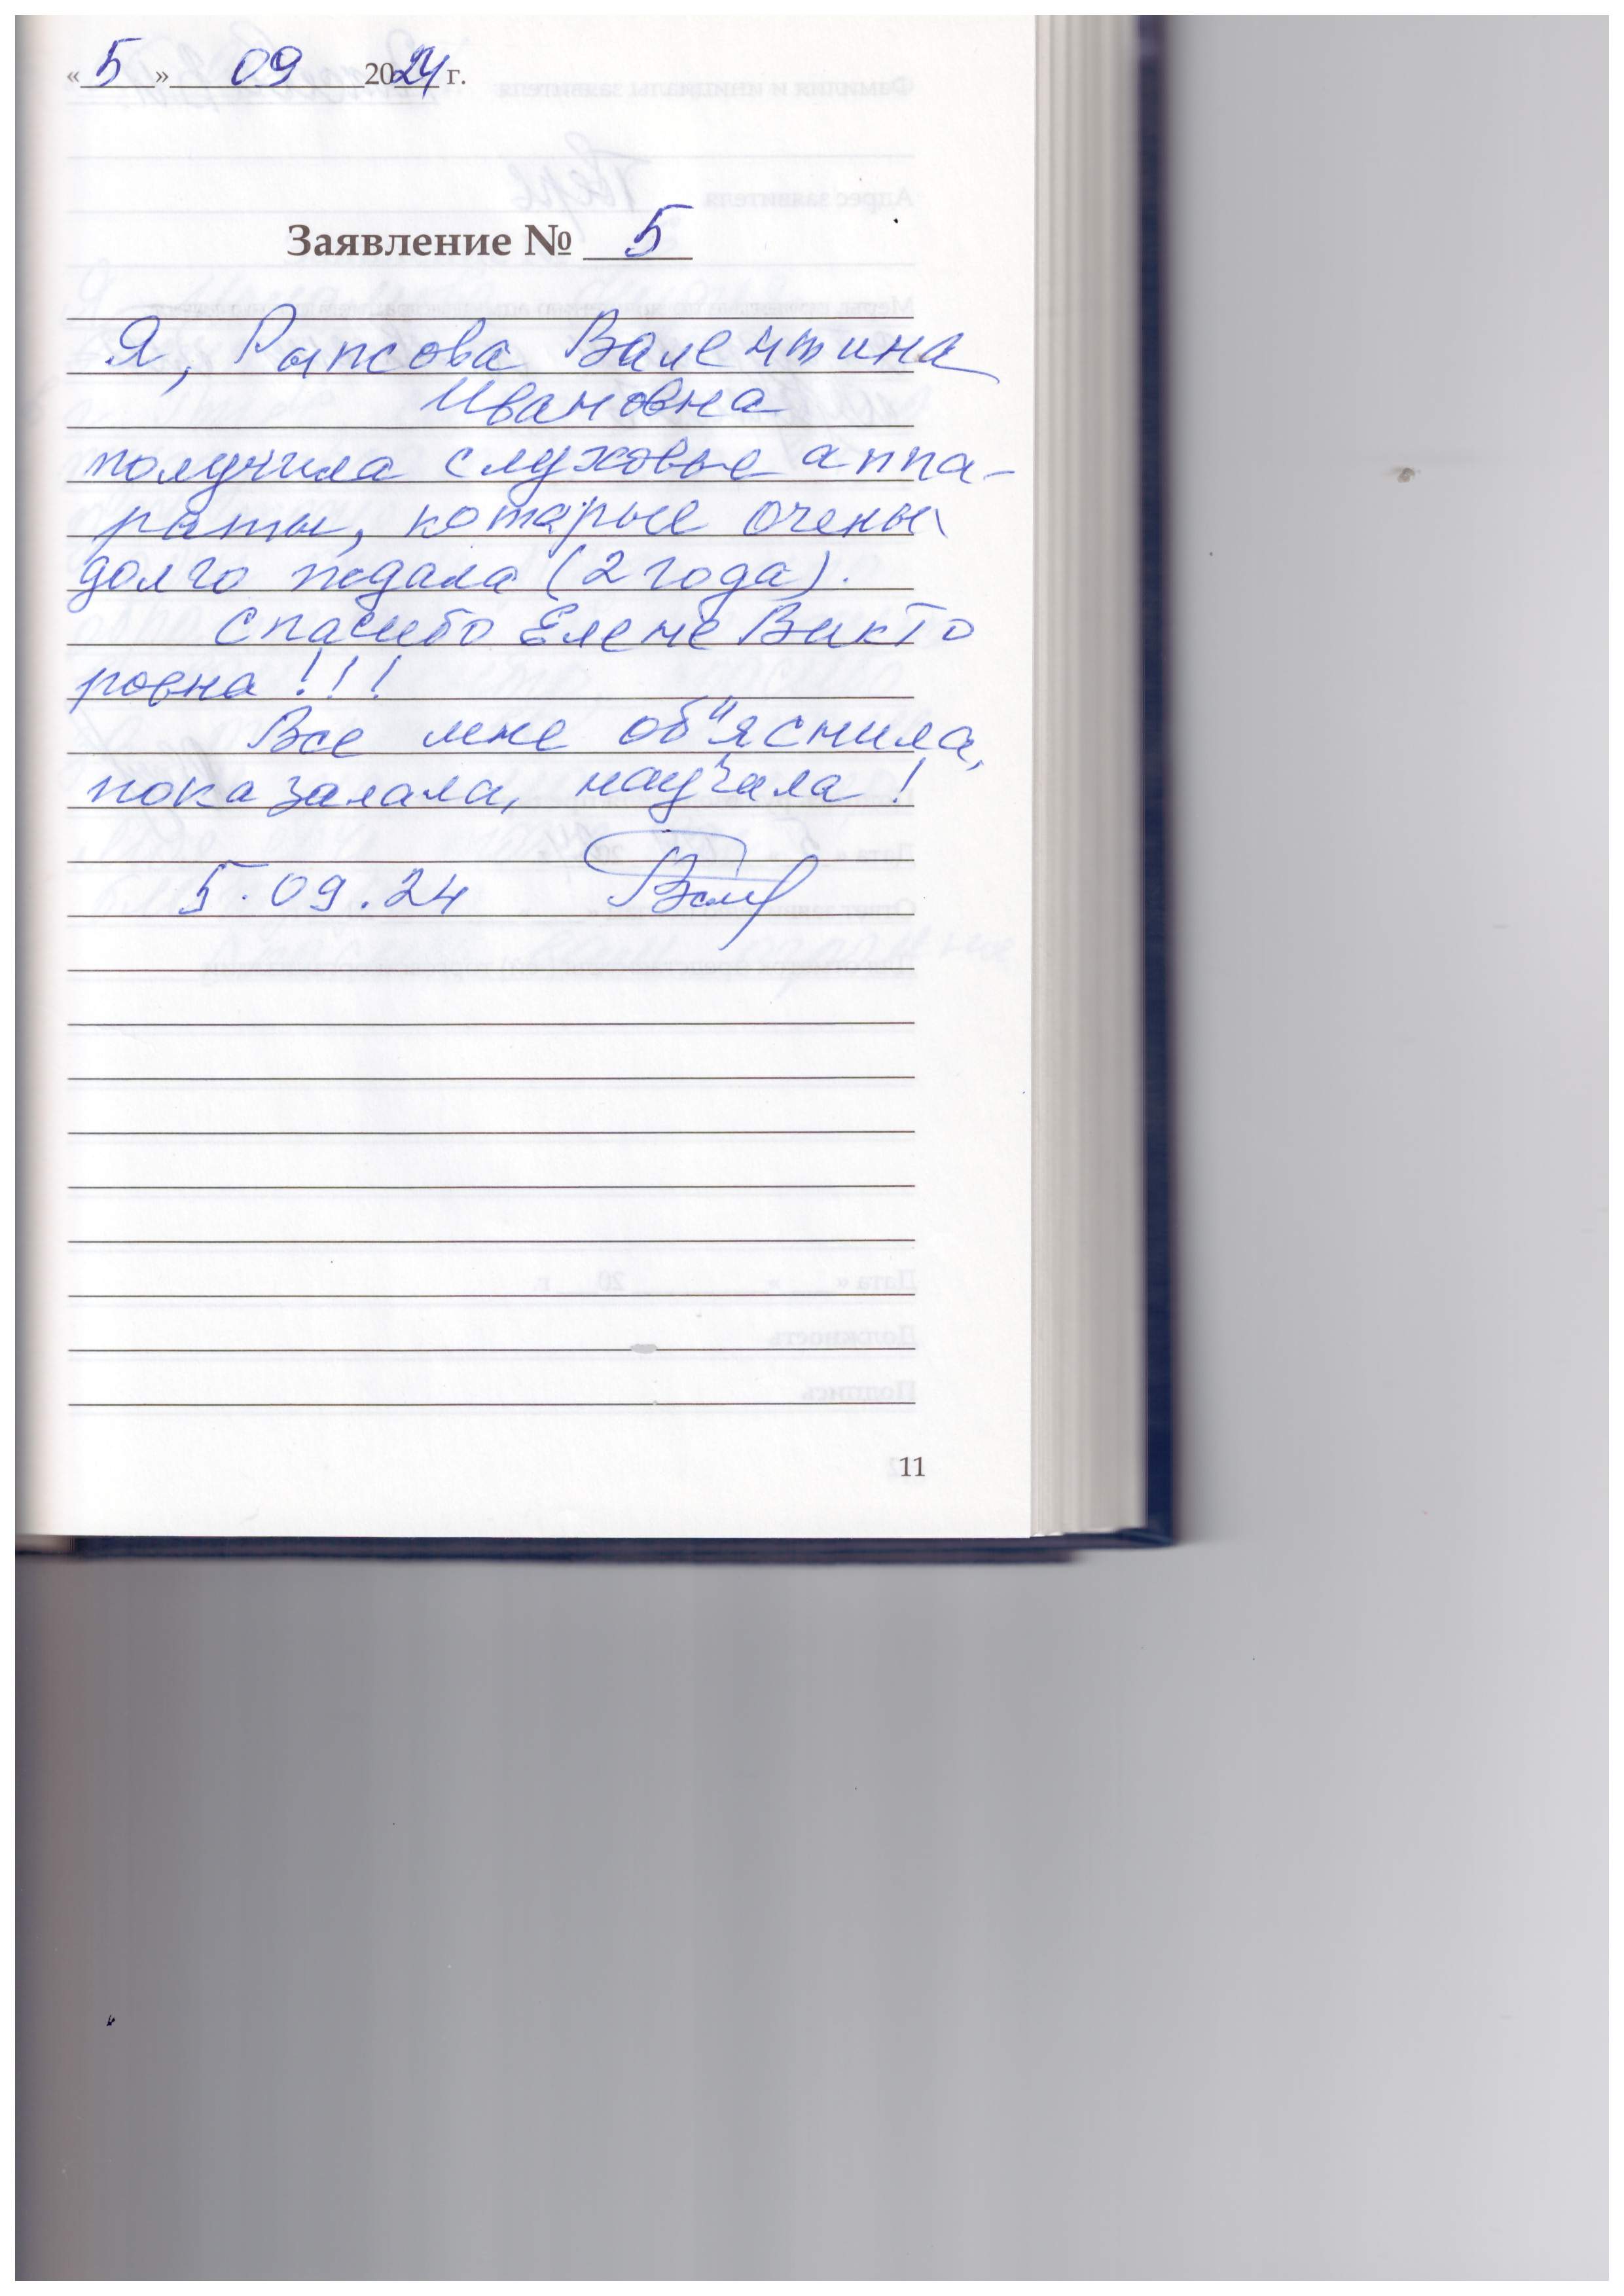 « 5 » 09 2024 г.
Заявление № 5
Я, Валентина
Ивановна
получила слуховые аппа-
раты, которые очень
долго ждала (2 года).
Спасибо Елене Викто
ровна !!!
Все мне об"яснила,
показалала, научала !
5.09.24
11